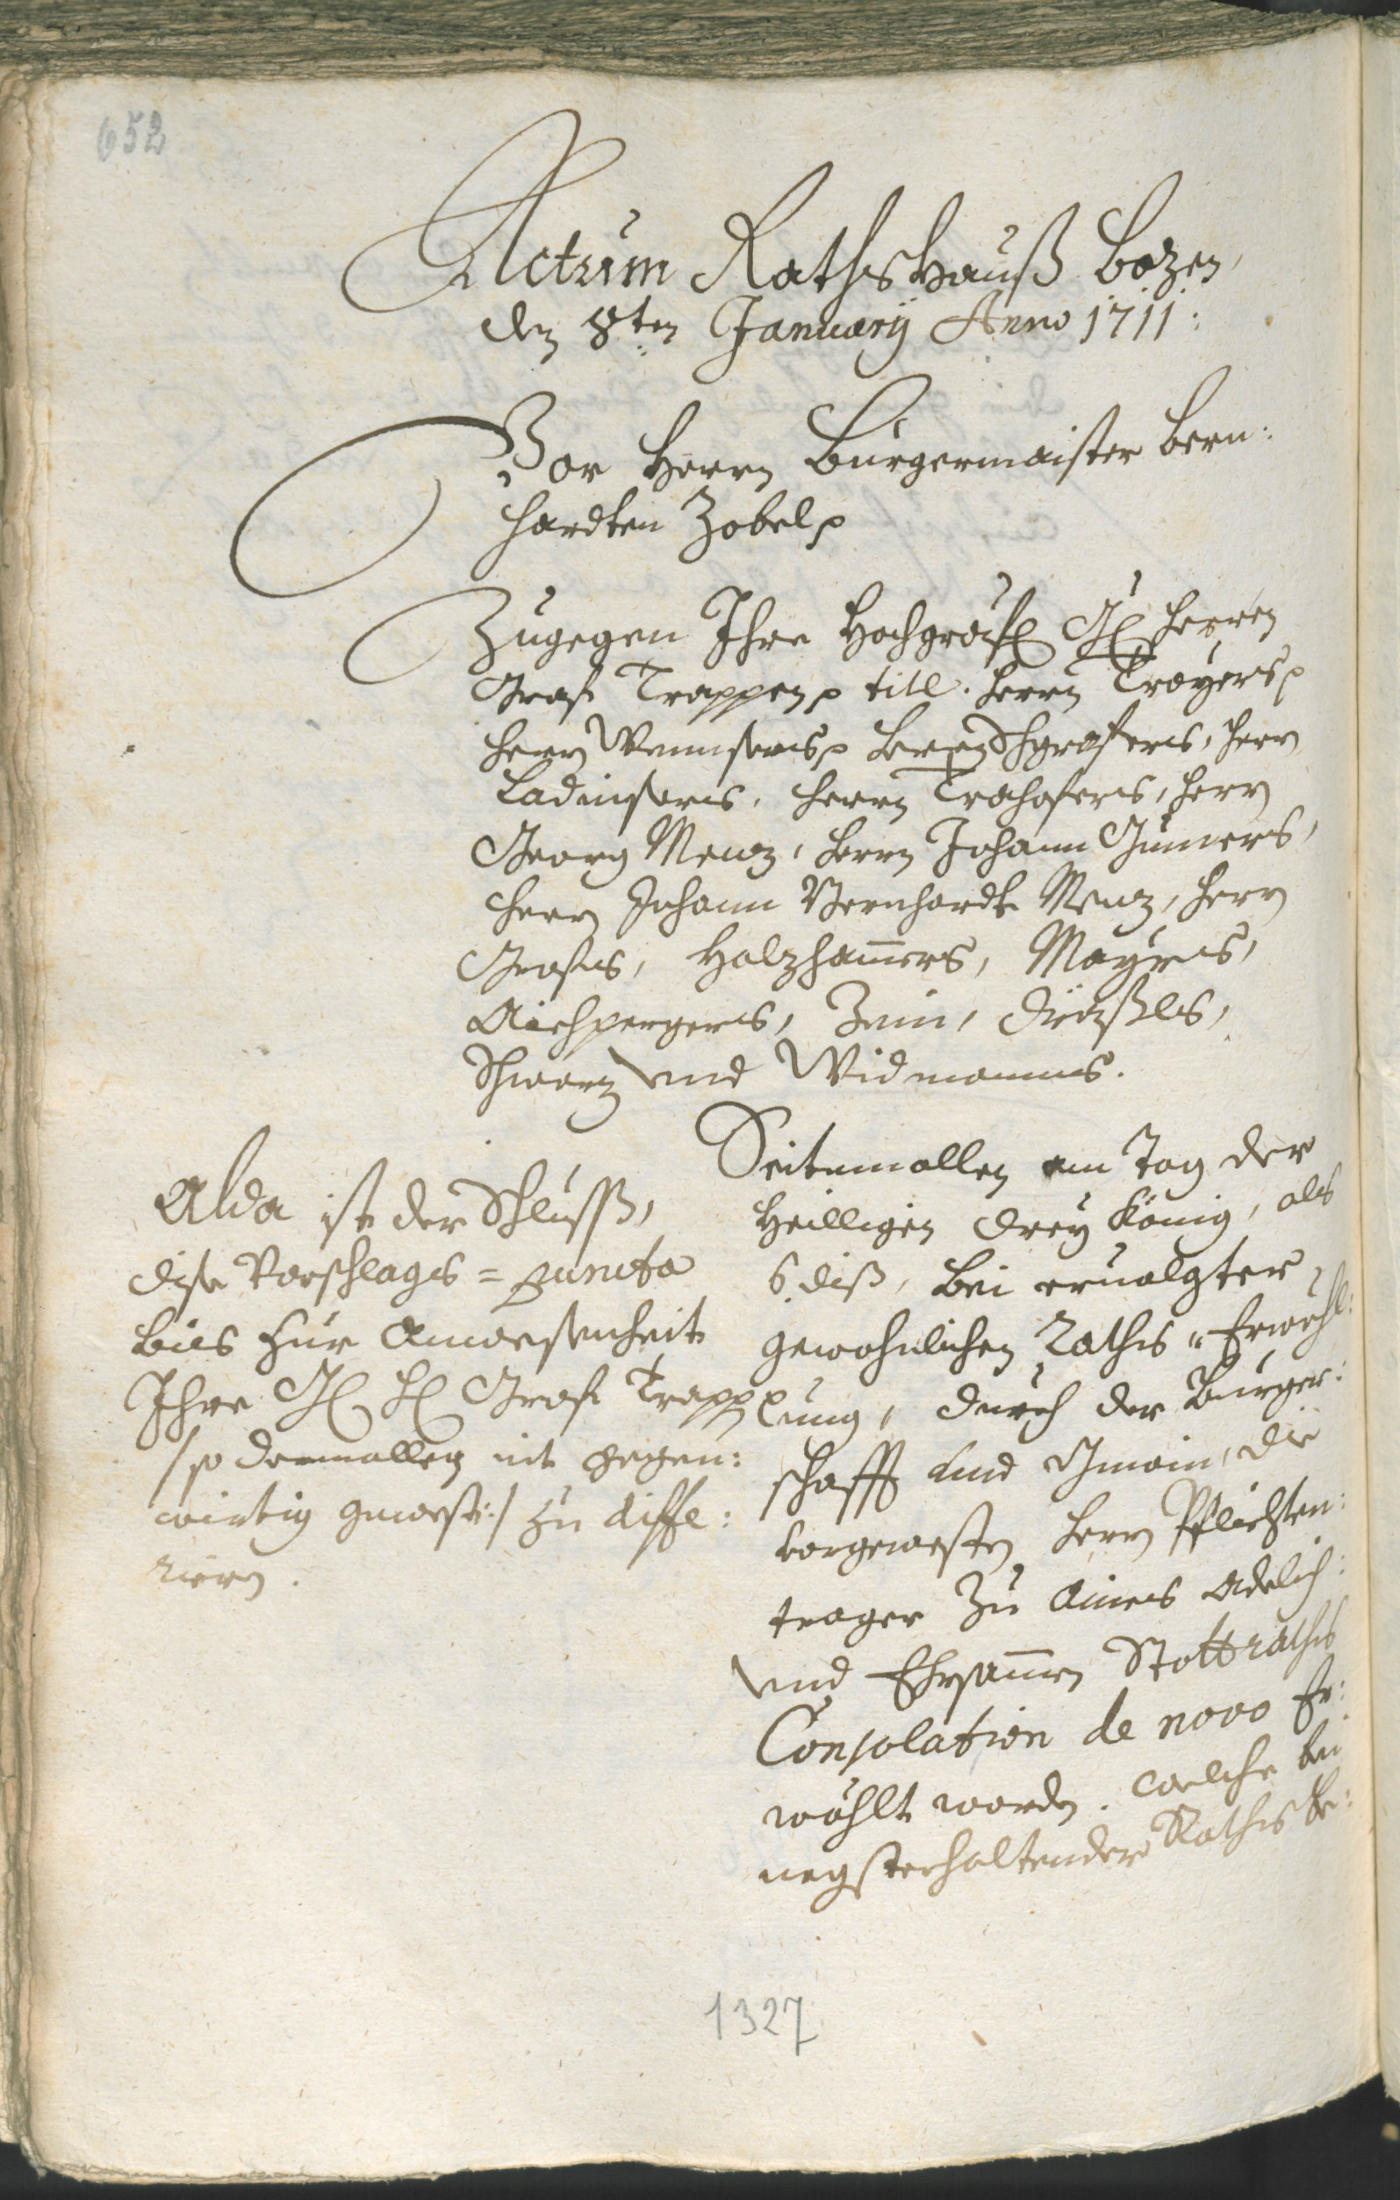 652
Actum Rathshauß Bozen,
den 8ten January Anno 1711:
Vor Herrn Burgermaister Bern:
hardten Zobel p
Zugegen Ihre Hochgräfl Gl Herren
Graf Trappen p titl. Herrn Troyers p
Herrn Wennsers p Herrn Hgrafers, Herrn
Ladinsers, Herrn Trohofers, Herrn
Georg Menz, Herrn Johann Gumers,
Herrn Johann Bernhardt Menz, Herrn
Grafns, Holzhamers, Mayrs,
Aichpergers, Zein,
Schwarz vnd Widmanns.
Alda ist der Schlusß,
dise Vorschlags=puncta
biss zur Anwesenheit
Ihro Gl Hl Graf Trapp p
/so dermallen nit gegen:
wirtig gewest:/ zu diffe:
rirn.
Seitemallen am Tag der
Heilligen drey König, als
6. diß, bei ervolgter
gewohnlichen Raths=Erwöhl:
ung, durch der Burger:
schafft und Gmain, die
vorgewesten Herrn Pflichten:
trager zu Aines Adelich:
vnd Ehrsamen Stattraths
Consolation de novo Er:
wöhlt worden. welche bei
negsterhaltender Raths Be:
1327